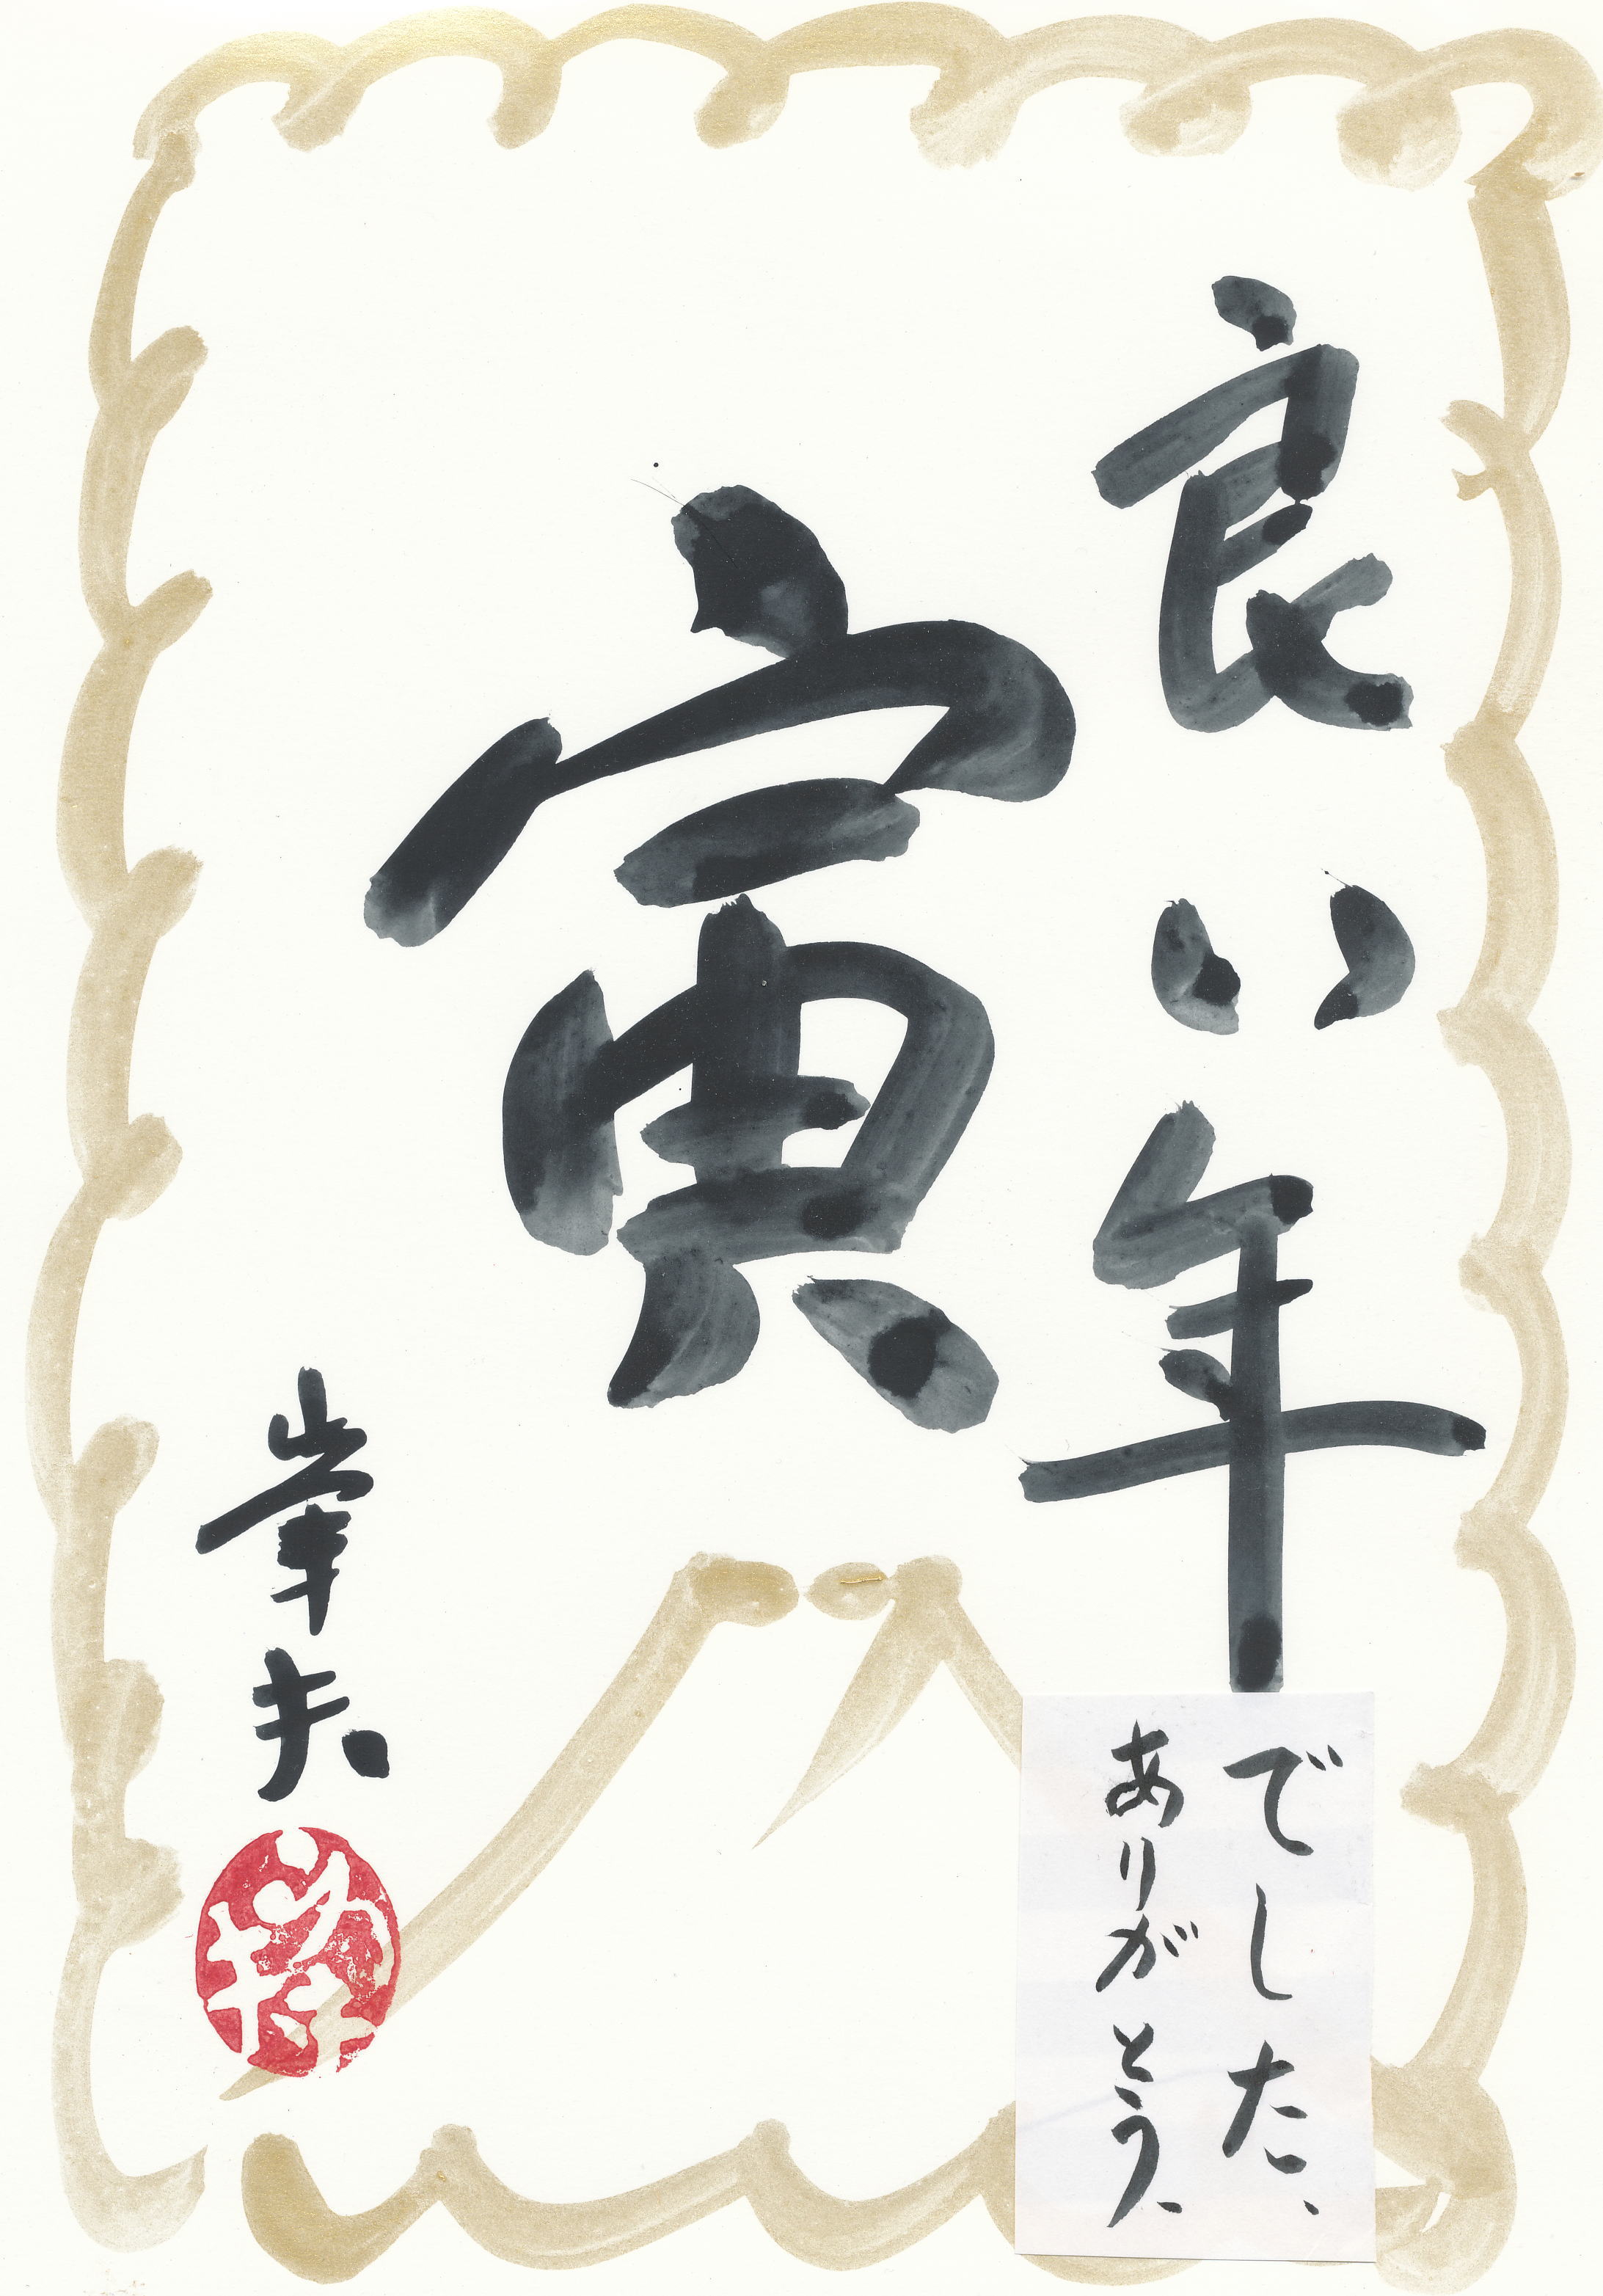 良い年
でした、
ありがとう、
寅
峯夫